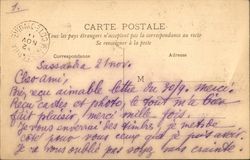 1.
CARTE POSTALE
Tous les pays étrangers n'acceptent pas la correspondance au recto
Se renseigner à la poste
Correspondance Adresse
M
Cassandra 21 nov.
Cher ami,
Bien reçu aimable lettre du 30/9. merci.
Reçu cartes et photo, le tout m'a bien
fait plaisir, merci mille fois.
Je vous enverrai des timbres je
côté pour vous ceux que je
Je ne vous oublie pas soyez sans crainte